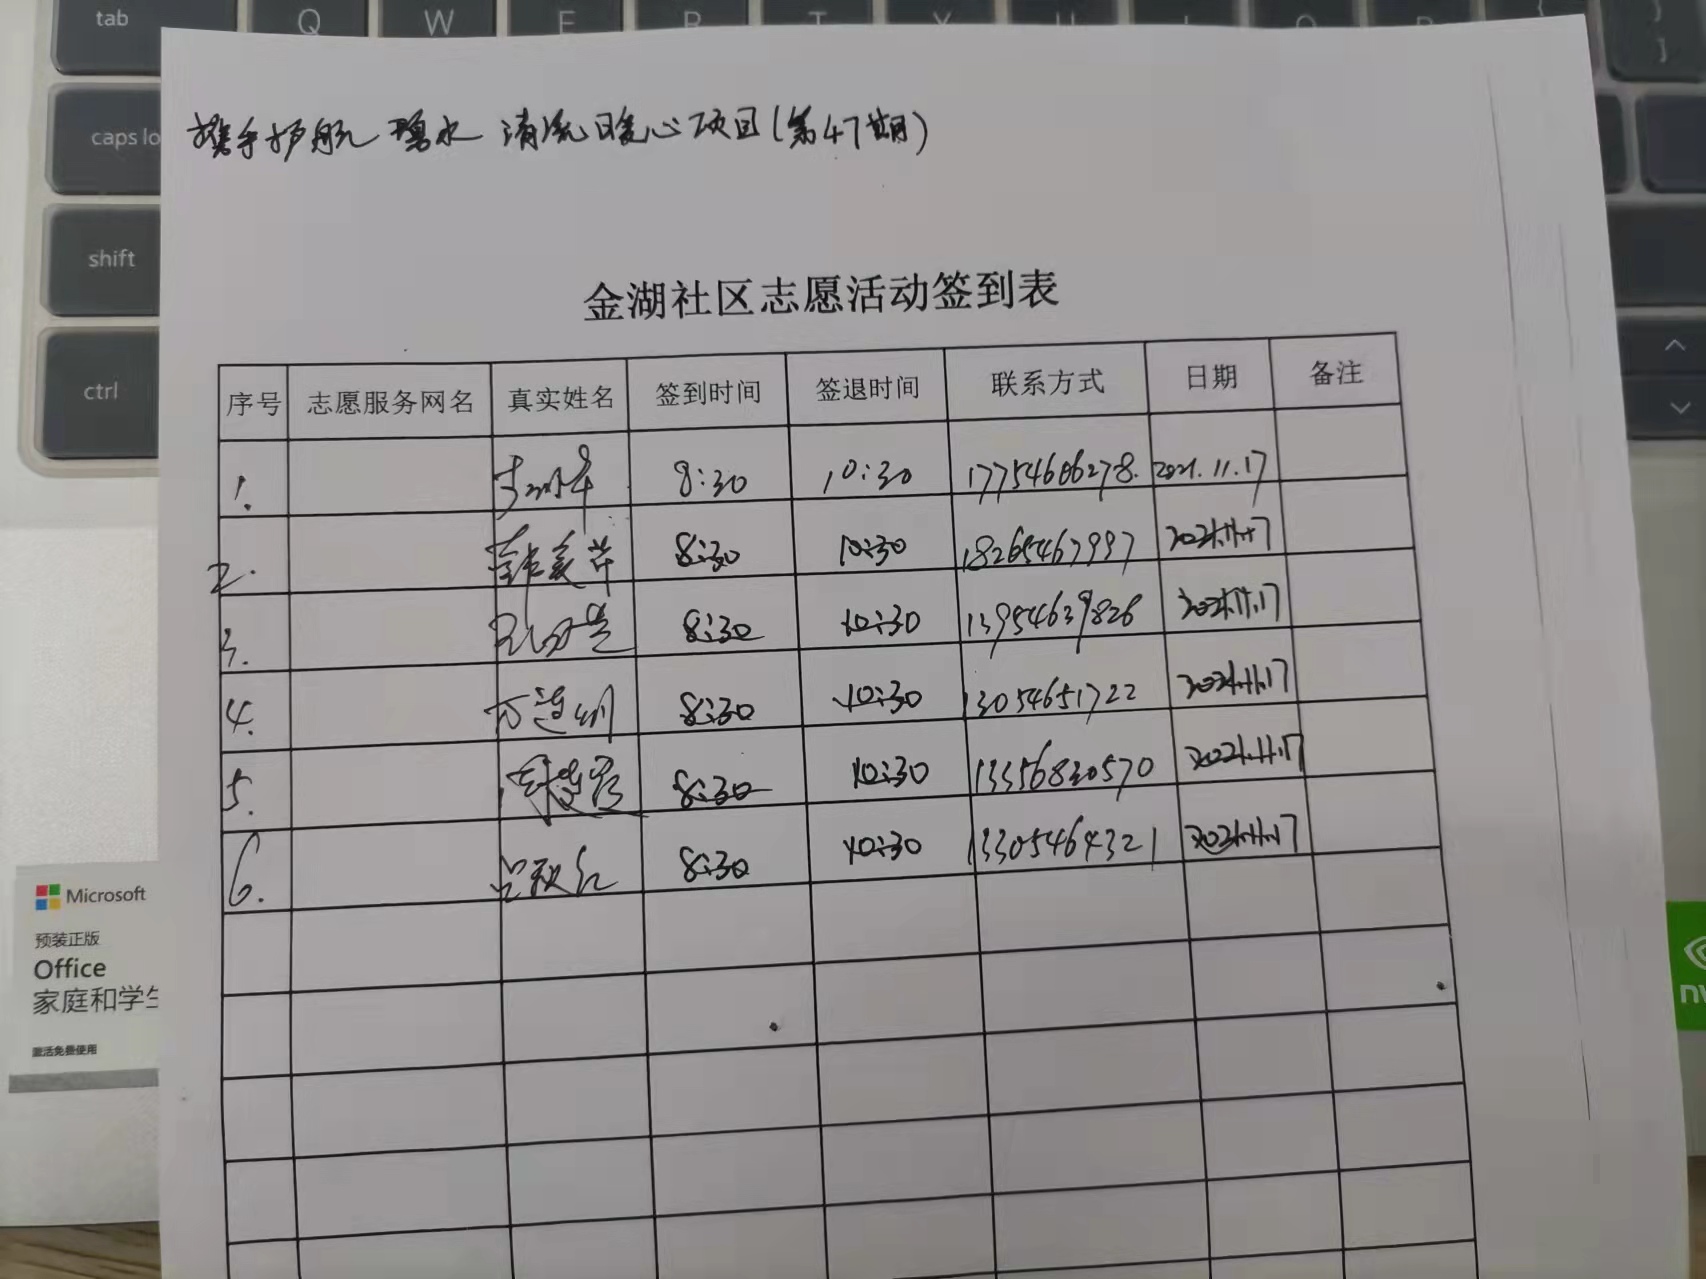 tab Q W E R T Y U
caps lo
shift
ctrl
携手护航 碧水 清流暖心项目(第47期)
金湖社区志愿活动签到表
序号 志愿服务网名 真实姓名 签到时间 签退时间 联系方式 日期 备注
1. 8:30 10:30 17754606278. 2021.11.17
2. 韩美萍 8:30 10:30 18265467997 2021.11.17
3. 8:30 10:30 13954639826 2021.11.17
4. 8:30 10:30 13054651722 2021.11.17
5. 8:30 10:30 13356830570 2021.11.17
6. 吕秋红 8:30 10:30 13305464321 2021.11.17
Microsoft
预装正版
Office
家庭和学生
激活免费使用